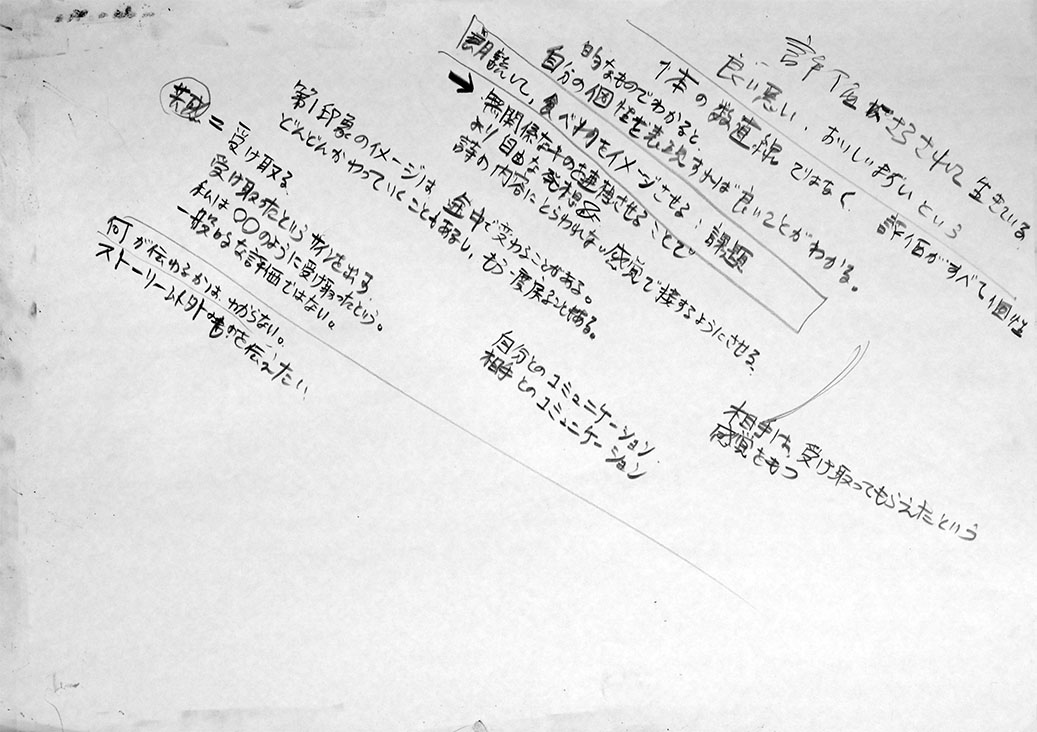 評価にさらされて生きている
良い悪い、おいしいまずいという
1本の数直線ではなく、評価がすべて個性
的なものでわかると、
自分の個性を表現すれば良いことがわかる。
朗読して、食べ物をイメージさせる:課題
→ 無関係なものを連想させることで
より自由な発想
詩の内容にとらわれない感覚で接するようにさせる、
相手は、受け取ってもらえたという
感覚をもつ
第1印象のイメージは、途中で変わることがある。
どんどんかわっていくこともあるし、もう一度戻ることもある。
自分とのコミュニケーション
相手とのコミュニケーション
共感
= 受け取る
受け取ったというサインを出す
私は○○のように受け取ったという。
一般的な評価ではない。
何が伝わるかは、わからない。
ストーリー以外のものを伝えたい